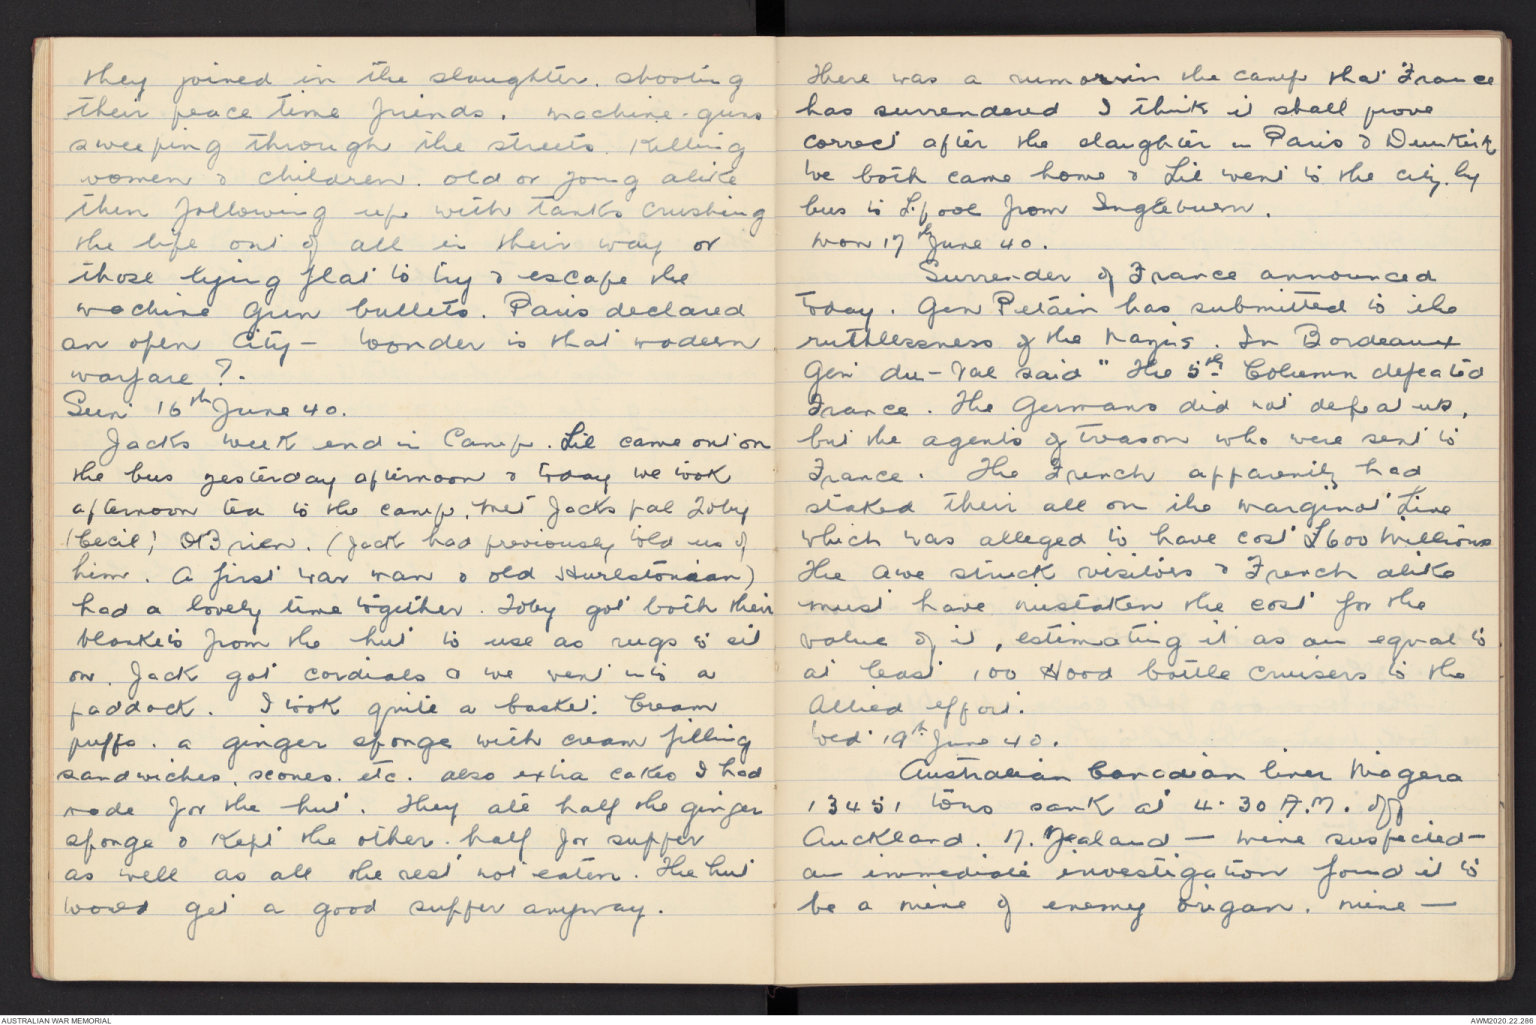 they joined in the slaughter. shooting
their peace time friends. machine-guns
sweeping through the streets. Killing
women & children. old or young alike
then following up with tanks crushing
the life out of all in their way or
those lying flat to try & escape the
machine gun bullets. Paris declared
an open City — Wonder is that modern
warfare ?.
Sun 16th June 40.
Jacks week end in Camp. Lil came out on
the bus yesterday afternoon & today we took
afternoon tea to the camp, met Jacks pal Toby
(Cecil) O'Brien. (Jack had previously told us of
him. A first war man & old Hurlstonian)
had a lovely time together. Toby got both their
blankets from the hut to use as rugs to sit
on. Jack got cordials & we went into a
paddock. I took quite a basket. Cream
puffs. a ginger sponge with cream filling
sandwiches, scones. etc. also extra cakes I had
made for the hut. They ate half the ginger
sponge & kept the other half for supper
as well as all the rest not eaten. The hut
would get a good supper anyway.
There was a rumour in the camp that France
has surrendered I think it shall prove
correct after the slaughter in Paris & Dunkirk
We both came home & Lil went to the city by
bus to L'pool from Ingleburn.
Mon 17th June 40.
Surrender of France announced
today. Gen Petain has submitted to the
ruthlessness of the Nazis. In Bordeaux
Gen' du-Val said " The 5th Column defeated
France. The Germans did not defeat us,
but the agents of treason who were sent to
France. The French apparently had
staked their all on the marginot Line
which was alleged to have cost £600 Millions
The awe struck visitors & French alike
must have mistaken the cost for the
value of it, estimating it as an equal to
at least 100 Hood battle cruisers to the
Allied effort.
Wed 19th June 40.
Australian Canadian liner Niagera
13451 tons sank at 4.30 A.M. off
Auckland. N. Zealand — mine suspected —
an immediate investigation found it to
be a mine of enemy origan. mine —
AUSTRALIAN WAR MEMORIAL
AWM2020.22.286